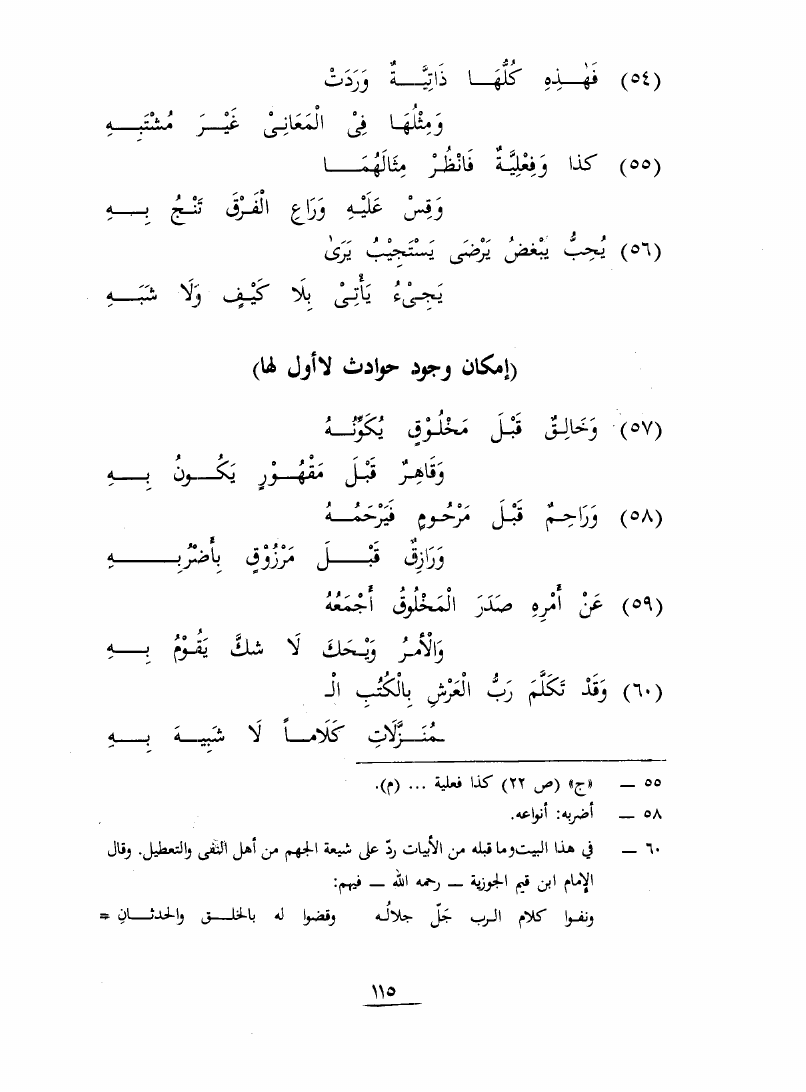 (٥٤) فَهٰـذِهِ كُلُّهَـا ذَاتِيَّـةٌ وَرَدَتْ
وَمِثْلُهَا فِى الْمَعَانِىْ غَيْـرَ مُشْتَبِـهِ
(٥٥) كذا وَفِعْلِيَّةٌ فَانْظُرْ مِثَالَهُمَـا
وَقِسْ عَلَيْهِ وَرَاعِ الْفَرْقَ تَنْجُ بِـهِ
(٥٦) يُحِبُّ يُبْغِضُ يَرْضَى يَسْتَجِيْبُ يَرَىٰ
يَجِىْءُ يَأْتِىْ بِلَا كَيْفٍ وَلَا شَبَـهِ
(إمكان وجود حوادث لاأول لها)
(٥٧) وَخَالِقٌ قَبْلَ مَخْلُوْقٍ يُكَوِّنُـهُ
وَقَاهِرٌ قَبْلَ مَقْهُـوْرٍ يَكُـونُ بِـهِ
(٥٨) وَرَاحِمٌ قَبْلَ مَرْحُومٍ فَيَرْحَمُـهُ
وَرَازِقٌ قَبْـلَ مَرْزُوْقٍ بِأَضْرُبِـهِ
(٥٩) عَنْ أَمْرِهِ صَدَرَ الْمَخْلُوقُ أَجْمَعُهُ
وَالْأَمْرُ وَيْحَكَ لَا شكَّ يَقُوْمُ بِـهِ
(٦٠) وَقَدْ تَكَلَّمَ رَبُّ الْعَرْشِ بِالْكُتْبِ الْـ
ـمُنَـزَّلَاتِ كَلَامـاً لَا شَبِيـهَ بِـهِ
٥٥ — «ج» (ص ٢٢) كذا فعلية ... (م).
٥٨ — أضربه: أنواعه.
٦٠ — فى هذا البيت وما قبله من الأبيات ردّ على شيعة الجهم من أهل النفى والتعطيل. وقال
الإمام ابن قيم الجوزية — رحمه الله — فيهم:
ونفـوا كلام الـرب جَلّ جلالُـه وقضوا له بالخلـق والحدثـان =
١١٥